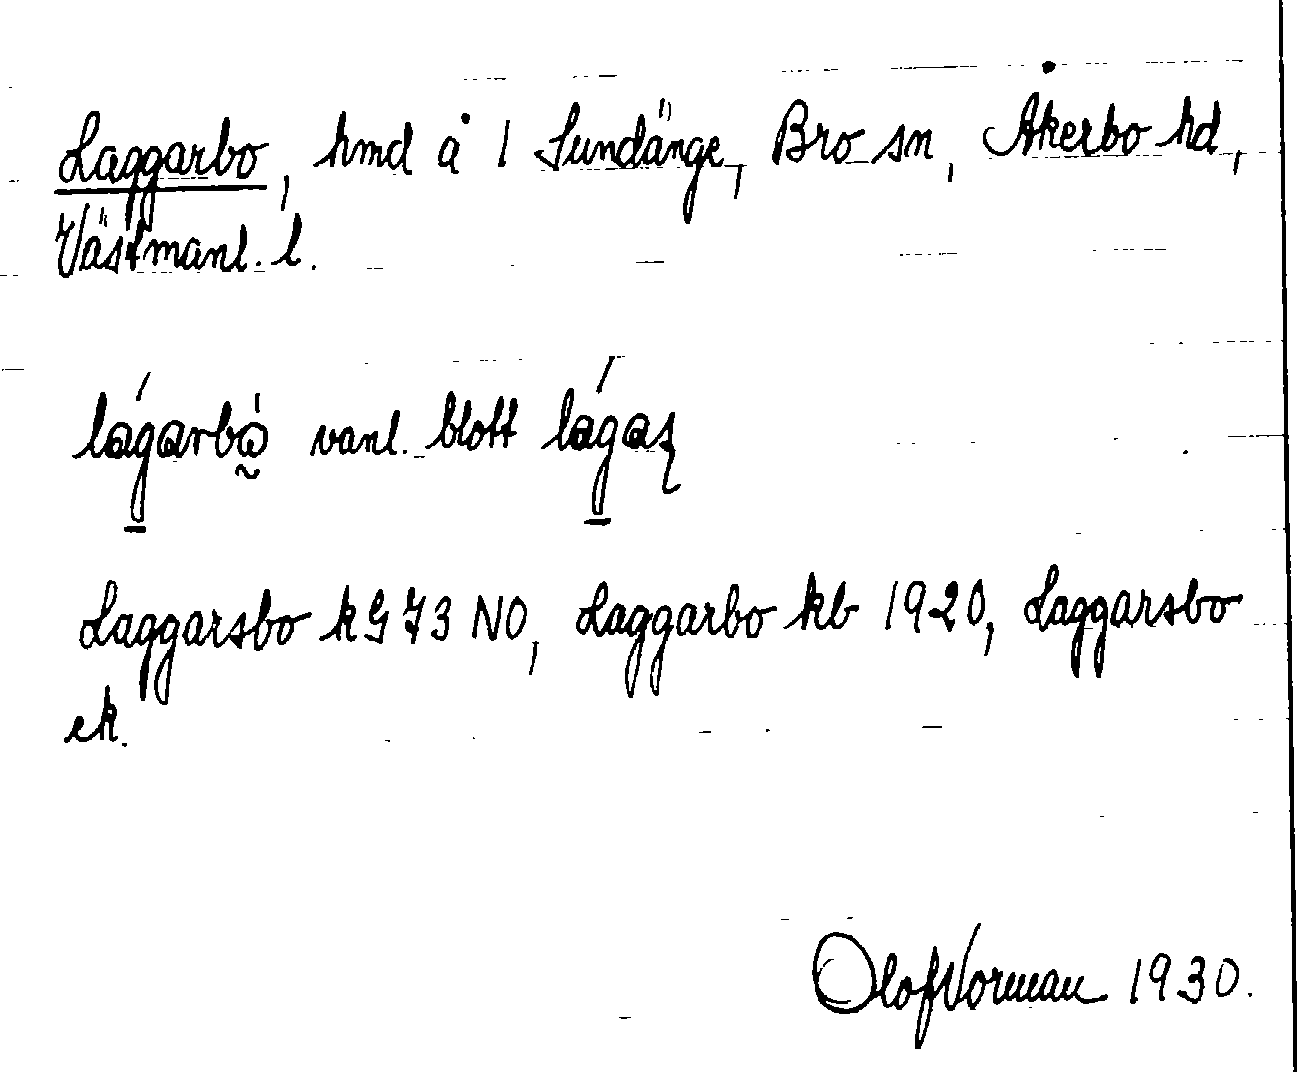 Laggarbo, hmd å 1 Sundänge, Bro sn, Åkerbo hd,
Västmanl. l.
lágarbò̰ vanl. blott lágaʂ
Laggarsbo kG 73 NO, Laggarbo kb 1920, Laggarsbo
ek.
Olof Norman 1930.